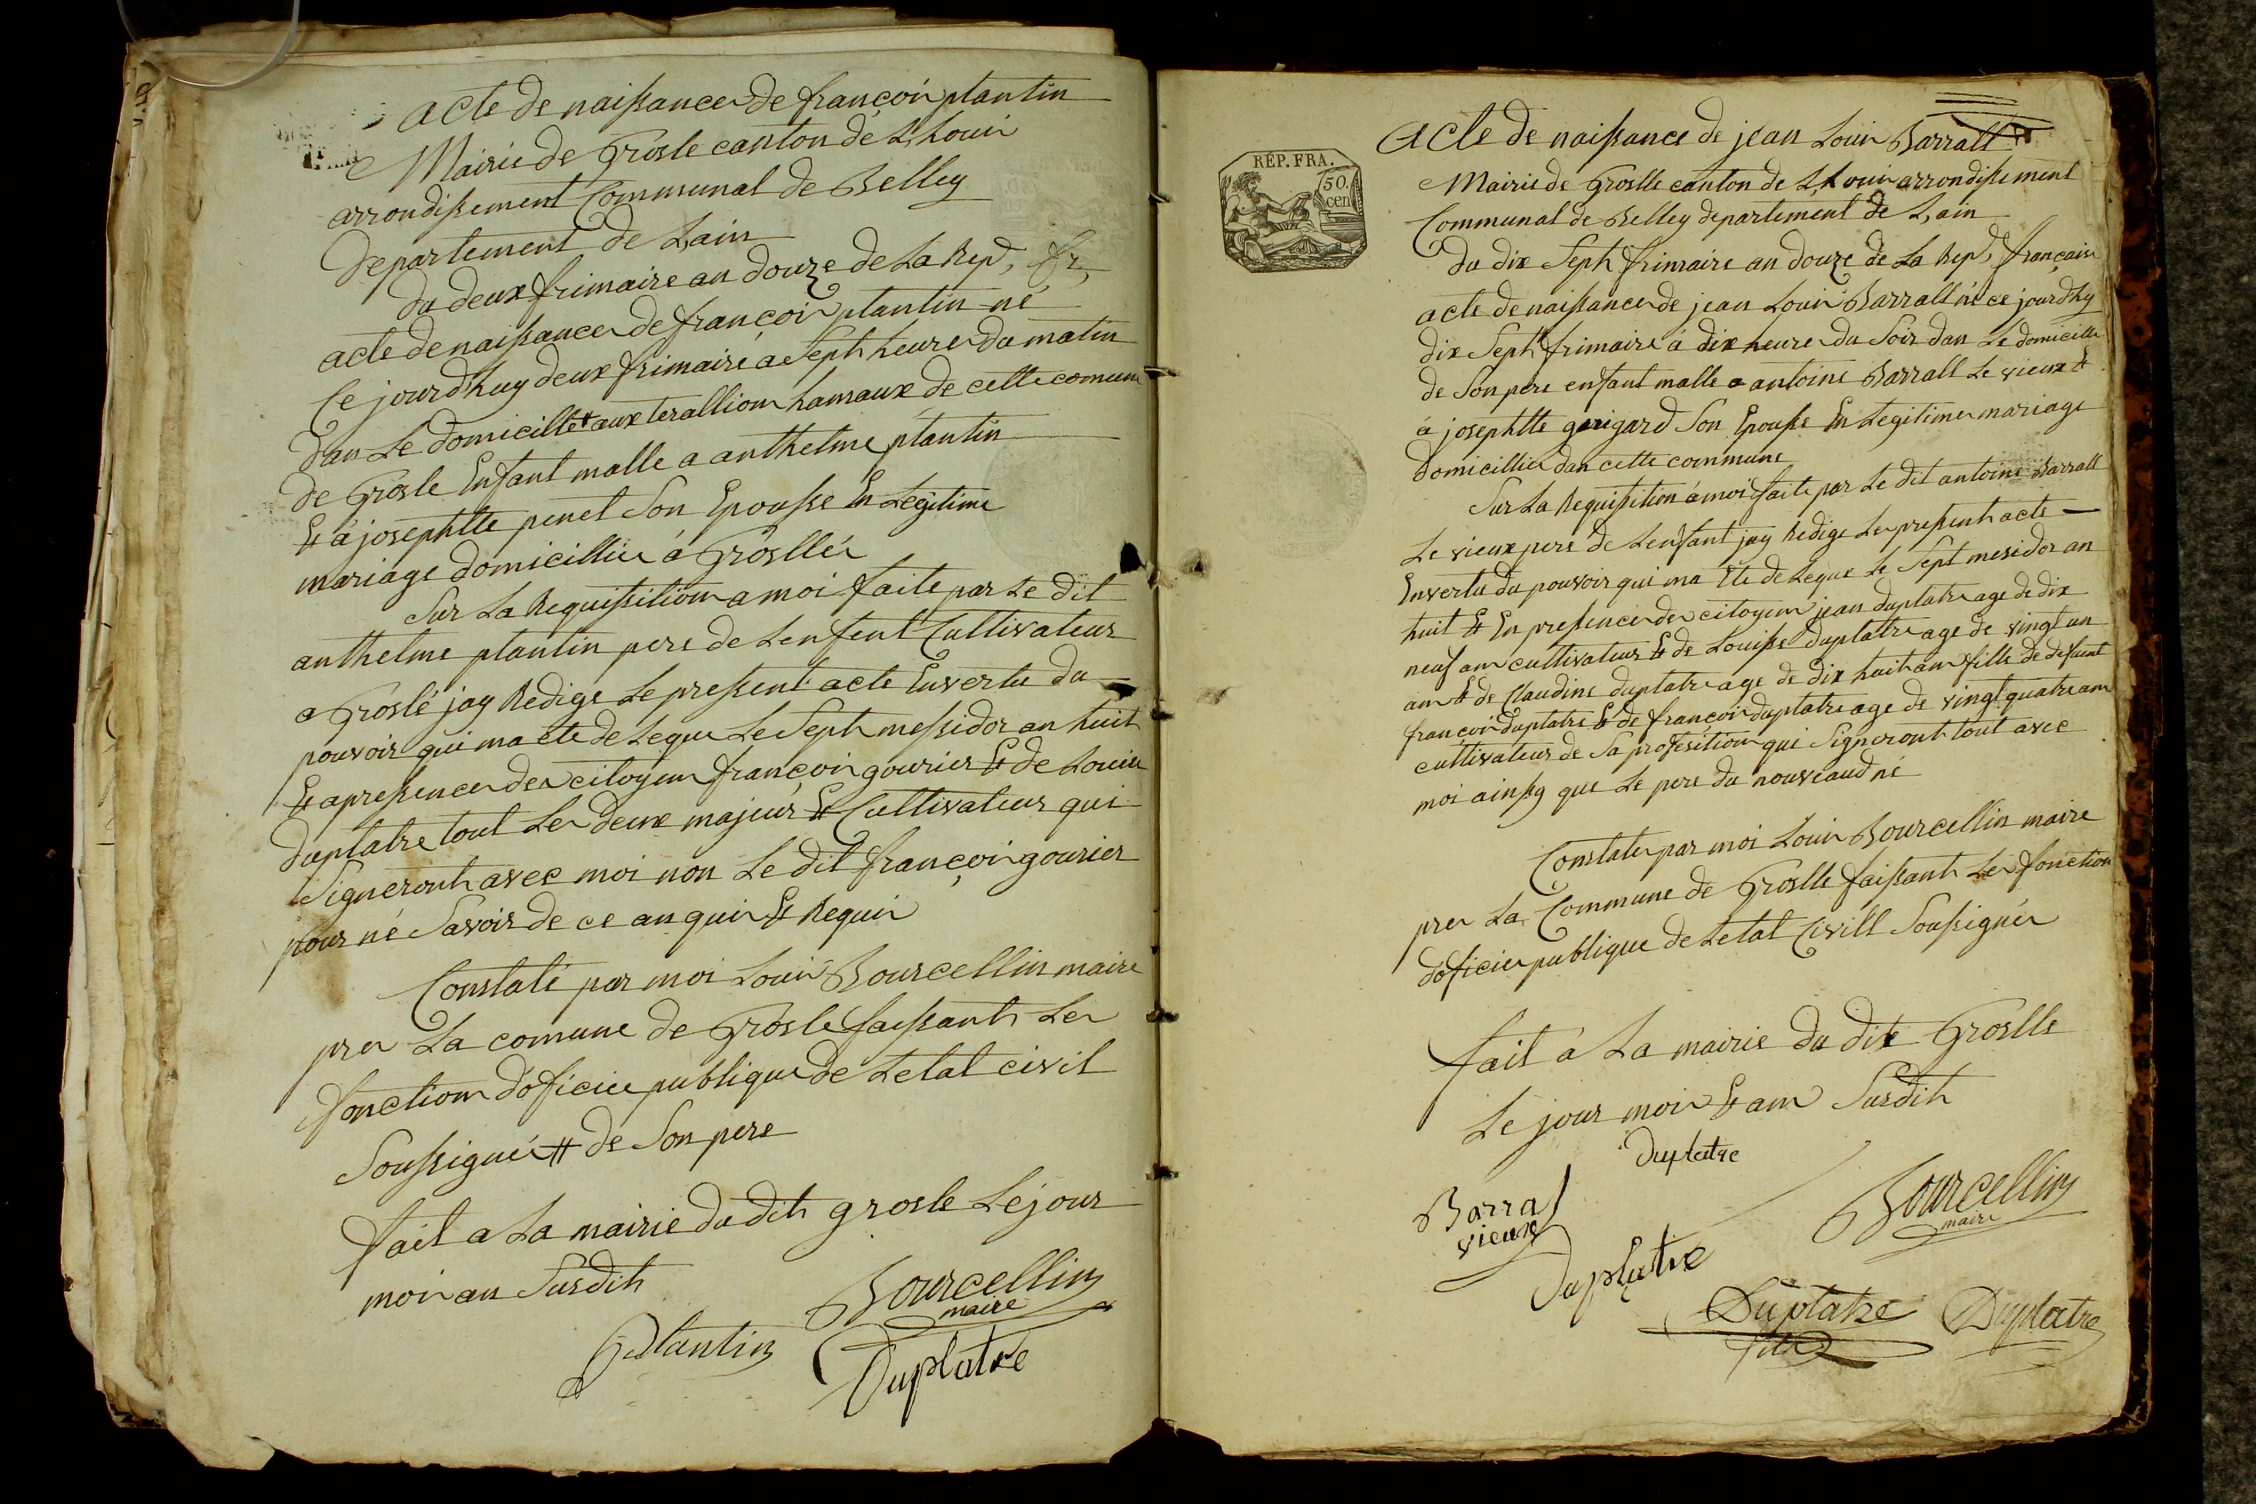 acte de naissance de françois plantin
Mairie de Grosle canton de Lhouis
arrondissement Communal de Belley
departement de Lain
du deux frimaire an douze de la Rep, fr,
acte de naissance de françois plantin né
Ce jourdhuy deux frimaire a Sept heures du matin
dans Le domicille aux terallions hamaux de cette comune
de Grosle Enfant malle a anthelme plantin
Et á josephtte penet Son Epousse En Legitime
mariage domicilliés á Groslleé
Sur La Requissition a moi faite par Le dit
anthelme plantin pere de Lenfent Cultivateur
a Groslé jay Redige Le pressent acte Envertu du
pouvoir qui ma ete delegue Le Sept messidor an huit
Et apressence des citoyens françois gourier Et de Louis
duplatre tout Les deux majeurs Et Cultivateurs qui
Signeront avec moi non Le dit françois gourier
pour né Savoir de ce anquis Et Requis
Constaté par moi Louis Bourcellin maire
pres La comune de Grosle faissant Les
fonctions doficier publique de Letat civil
Soussigné # de Son pere
fait a La mairie du dit grosle Lejour
mois an Susdit
Bourcellin
maire
Plantin
Duplatre
Acte de naissance de jean Louis Barrall
REP. FRA.
50.
cen
Mairie de Groslle canton de Lhouis arrondissement
Communal de Belley departement de L,ain
du dix Sept frimaire an douze de La Rep, français
acte de naissance de jean Louis Barrall né ce jourdhy
dix Sept frimaire á dix heures du Soir dans Le domicille
de Son pere enfant malle a antoine Barrall Le vieux Et
á josephtte gerigard Son Epousse En Legitimes mariage
domicilliés dan cette commune
Sur La Requisition á moi faite par Le dit antoine Barrall
Le vieux pere de Lenfant jay Redige Le pressent acte
Envertu du pouvoir qui ma Ete delegue Le Sept mesidor an
huit Et En pressence des citoyens jean duplatre age de dix
neuf ans cultivateur Et de Louisse duplatre age de vingt un
ans Et de Claudine duplatre age de dix huit ans fille de defunt
françois duplatre Et de françois duplatre age de vingt quatre ans
cultivateur de Sa profesition qui Signeront tout avec
moi ainssy que Le pere du nouveaud né
Constate par moi Louis Bourcellin maire
pres La Commune de Groslle faissant Les fonction
doficier publique de Letat Civill Soussignés
fait a La mairie du dit Groslle
Le jour mois Et ans Susdit
Duplatre
Barral
vieux
Bourcellin
maire
Duplatre
Duplatre
fils
Duplatre